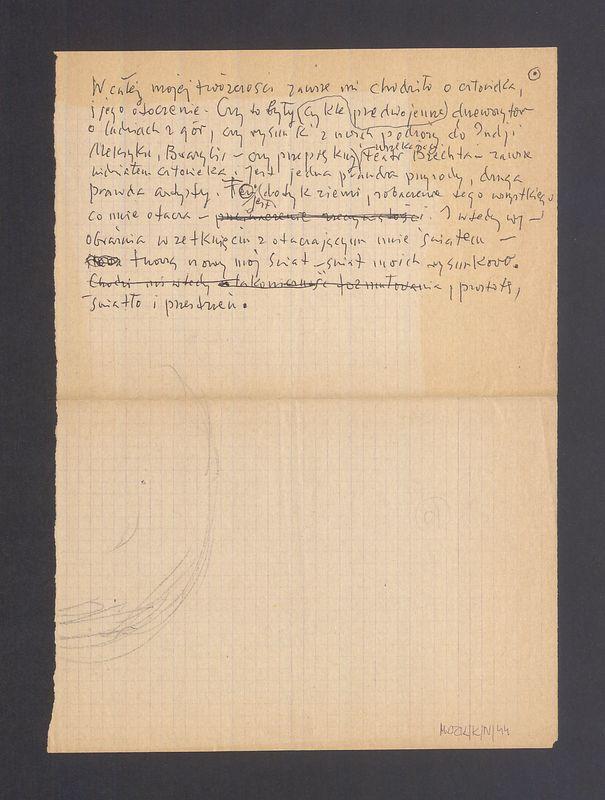 W całej mojej twórczości zawsze mi chodziło o człowieka,
i jego otoczenie. Czy to były (cykle przedwojenne) drzeworytów
o ludziach z gór, czy rysunki z moich podróży do Indji
Meksyku, Brazylii – czy przepiękny teatr Brechta – zawsze
widziałem człowieka. Jest jedna prawda przyrody, druga
prawda artysty. Jest dotyk ziemi, zobaczenie tego wszystkiego
co mnie otacza – i. I wtedy wy-
obraźnia w zetknięciu z otaczającym mnie światem –
tworzy nowy mój świat – świat moich rysunków.
Chodzi mi wtedy o lakoniczność formułowania, prostotę,
światło i przestrzeń.
MWOZK/K/N/44